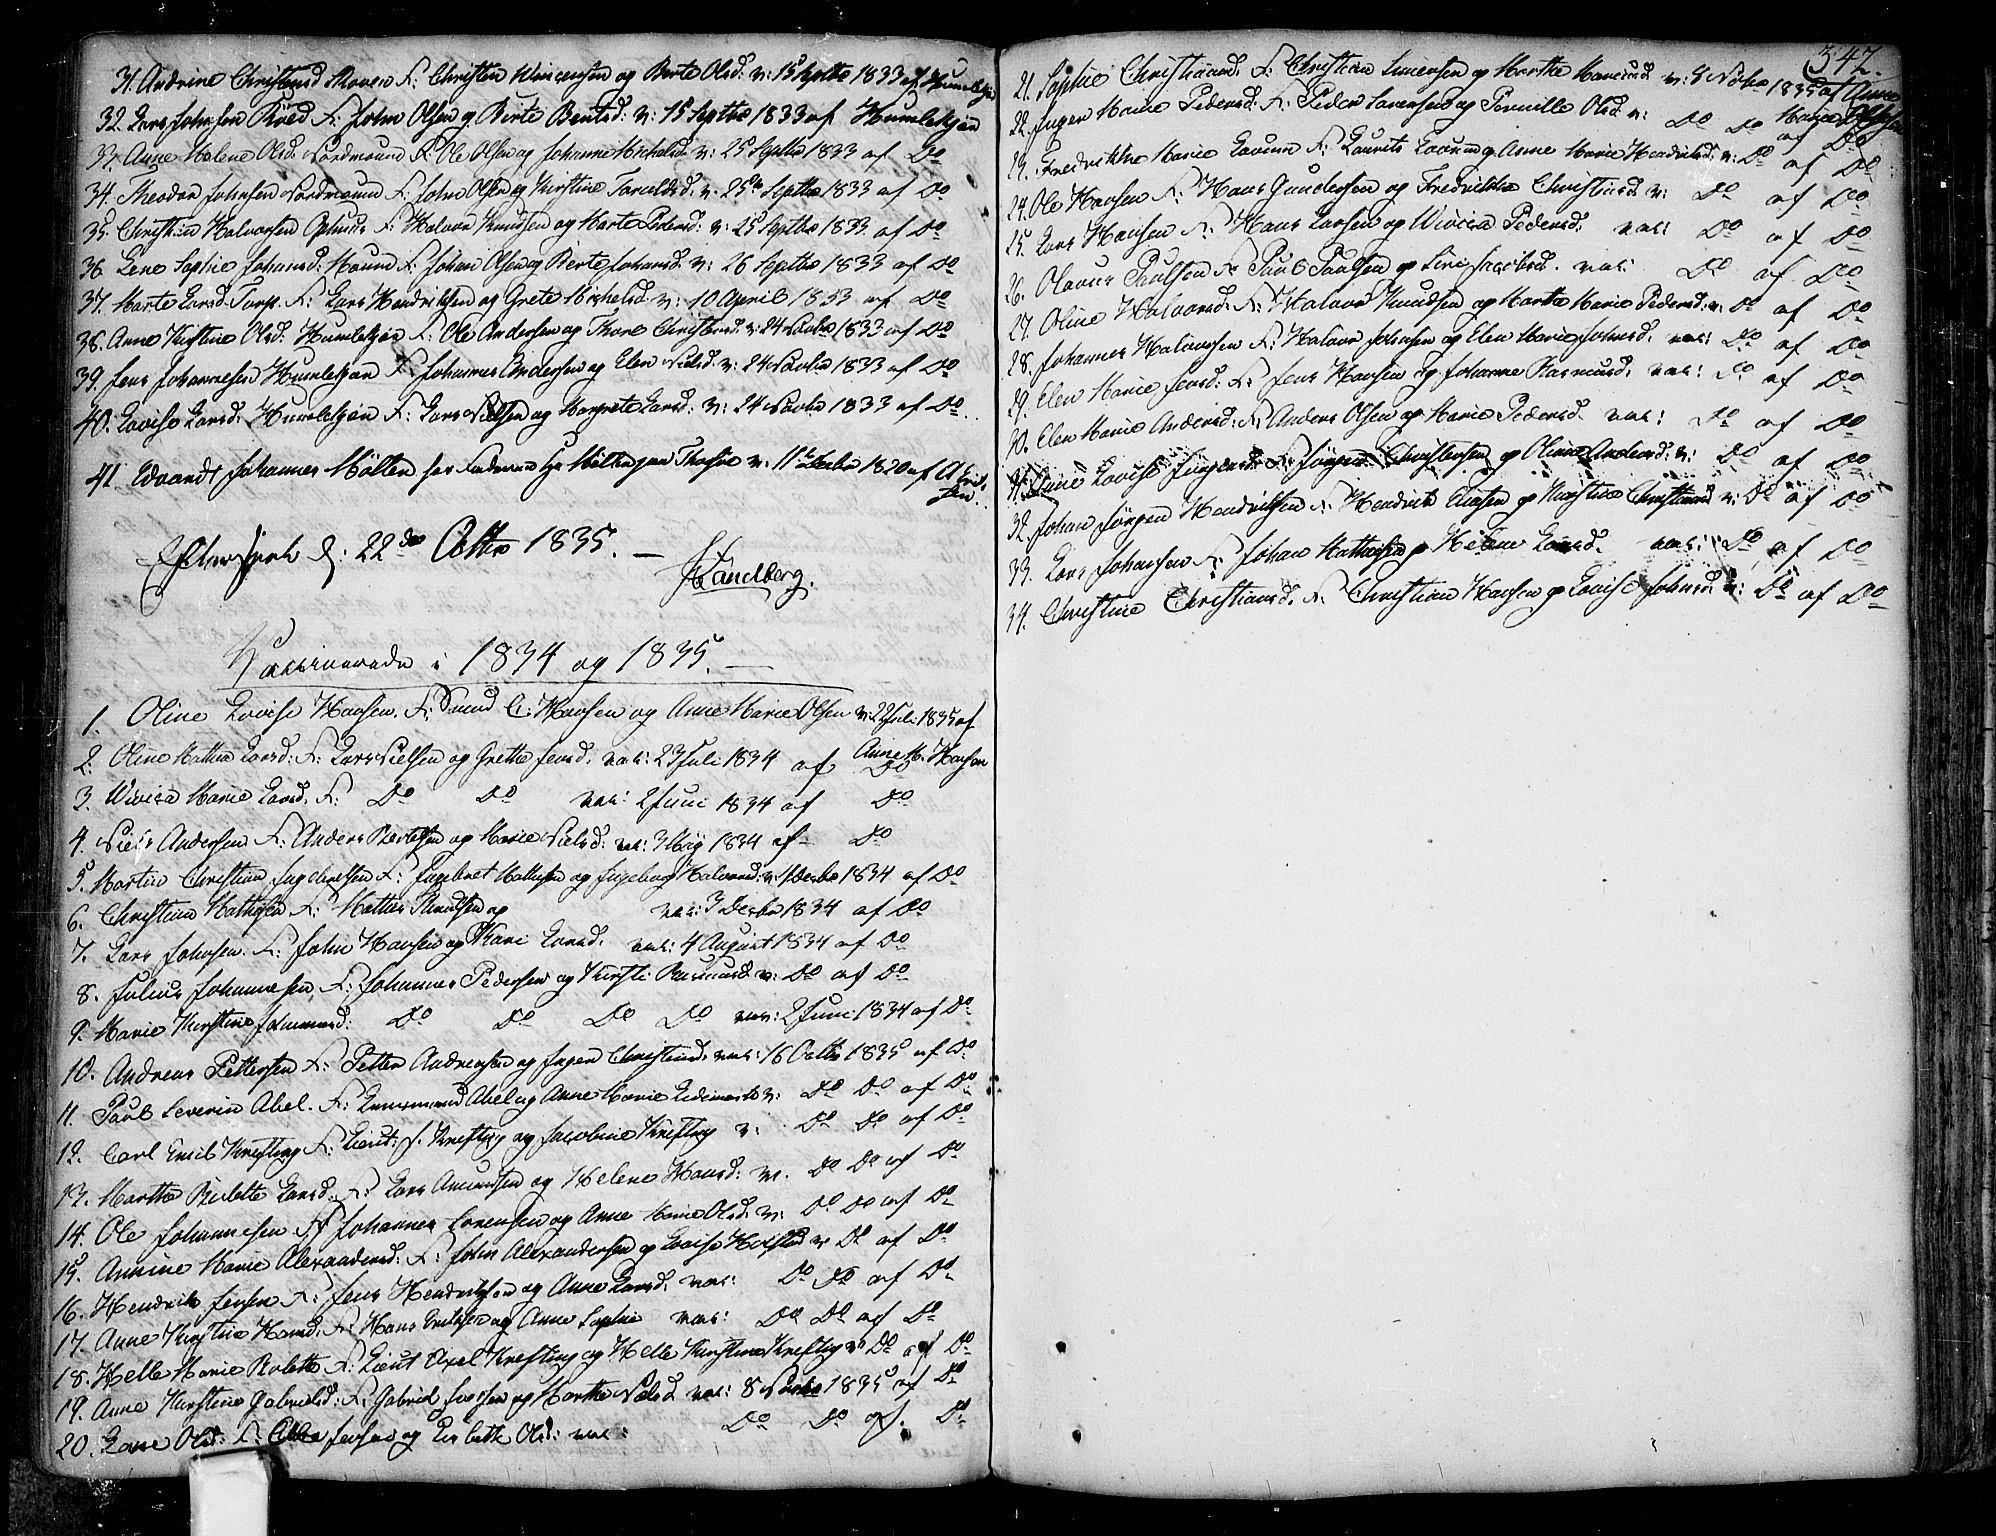 31. Andrine Christensd Skoven F: Christen Wincensen og Berte Olsd: v: 15 Septbr 1833 af Humlekjær
32. Lars Johnsen Röed F: John Olsen og Berte Bentsd: v: 15 Septbr 1833 af Humlekjær
33. Anne Malene Olsd: Nordmound F: Ole Olsen og Johanne Michelsd: v: 25 Septbr 1833 af Do
34. Theodor Johnsen Nordmoun F: John Olsen og Kirstine Taraldsd. v. 25 Septbr 1833 af Do
35. Christian Halvorsen Ophuus F: Halvor Knudsen og Marte Pedersd: v: 25 Septbr 1833 af Do
36. Lene Sophie Johansd: Mound F: Johan Olsen og Berte Johansd: v: 26 Septbr 1833 af Do
37. Marte Larsd: Torp. F: Lars Hendriksen og Grete Michelsd: v: 10 April 1833 af Do
38. Anne Kirstine Olsd: Humlekjær F: Ole Andersen og Thore Christensd: v: 24 Novbr 1833 af Do
39. Jens Johannesen Humlekjær F: Johannes Andersen og Elen Nielsd: v: 24 Novbr 1833 af Do
40. Lovise Larsd: Humlekjær F: Lars Nielsen og Margrete Larsd: v: 24 Novbr 1833 af Do
41 Edvardt Johannes Möller v: 11 1820 af
22de Octbr 1835. —
Sandberg.
Vaccinerede i 1834 og 1835. —
1. Oline Lovise Hansen. F: Svend C: Hansen og Anne Marie Olsen v: 22 Juli 1835 af
Anne M. Hansen
2. Oline Mathea Larsd: F: Lars Nielsen og Grethe Jensd. vac: 23 Juli 1834 af Do
3. Wivica Marie Larsd. F: Do Do vac: 2 Juni 1834 af Do
4. Niels Andersen F: Anders Bertelsen og Marie Nielsd: vac: 3 Maj 1834 af Do
5. Martin Christian Ingebretsen F: Ingebret Mathisen og Ingeborg Halvorsd: v: 1 Decbr 1834 af Do
6. Christian Mathisen F: Mathis Knudsen og vac: 3 Decbr 1834 af Do
7. Lars Johnsen. F: John Hansen og Kari Larsd. vac: 4 August 1834 af Do
8. Julius Johannesen, F: Johannes Pedersen og Kirsti Rasmusd: v: Do af Do
9. Marie Kirstine Johannesd: Do Do Do Do vac: 2 Juni 1834 af Do
10. Andreas Pettersen F: Petter Andreasen og Inger Christensd. vac: 16 Octbr 1835 af Do
11. Paul Severin Abel. F: Abel og Anne Marie v: Do Do af Do
12. Carl Emil Krefting F: Lieut: J. Krefting og Jacobine Krefting v: Do Do af Do
13. Marthe Birlette Larsd. F: Lars Amundsen og Helene Hansd: v. Do Do af Do
14. Ole Johannesen F: Johannes Sörensen og Anne Marie Olsd. v: Do Do af Do
15. Annine Marie Alexandersd: F: John Alexandersen og Lovise v: Do af Do
16. Hendrik Jensen F: Jens Hendriksen og Anne Larsd. vac: Do Do af Do
17. Anne Kirstine Hansd: F: Hans Eriksen og Anne Sophie vac: Do Do af Do
18. Helle Marie Bolette F: Lieut Axel Krefting og Helle Kirstine Krefting v: Do af Do
19. Anne Kirstine Gabrielsd: F: Gabriel og Marthe Nielsd vac: 8 Novbr 1835 af Do
20. Lene Olsd: F: Jensen og Lisbeth Olsd: vac: Do Do af. Do
342.
21. Sophie Christiansd. F: Christian og Marthe Hansd v: 8 Novbr 1835 af Anne
Marie Olsen
22. Inger Marie Pedersd: F: Peder Sörensen og Pernille Olsd v: Do Do af Do
23. Fredrikke Marie Laurin F: Laurits Laurin og Anne Marie Hendriksd: v: Do af Do
24. Ole Hansen F: Hans Gundersen og Fredrikke Christensd v: Do af Do
25. Lars Hansen F: Hans Larsen og Wivica Pedersd. vac: Do af Do
26. Olavus Paulsen F: Paul Paulsen og Siri Jacobsd. vac: Do af Do
27. Oline Halvorsd. F: Halvor Knudsen og Marthe Marie Pedersd: v: Do af Do
28. Johannes Halvorsen F: Halvor Johnsen og Elen Marie Johnsd. vac: Do af Do
29. Elen Marie Jensd: F: Jens Hansen og Johanne Rasmusd. vac: Do af Do
30. Elen Marie Andersd: F: Anders Olsen og Marie Pedersd. vac: Do af Do
31. Anne Lovise Jörgensd: F: Jörgen Christensen og Oline Andersd: v: Do af Do
32. Johan Jörgen Hendriksen F: Hendrik Eliasen og Kirstine Christiansd v: Do af Do
33. Lars Johansen F: Johan Mathisen og Helene Larsd. vac: Do af Do
34. Christine Christiansd. F: Christian Hansen og Lovise Johnsd. v: Do af Do